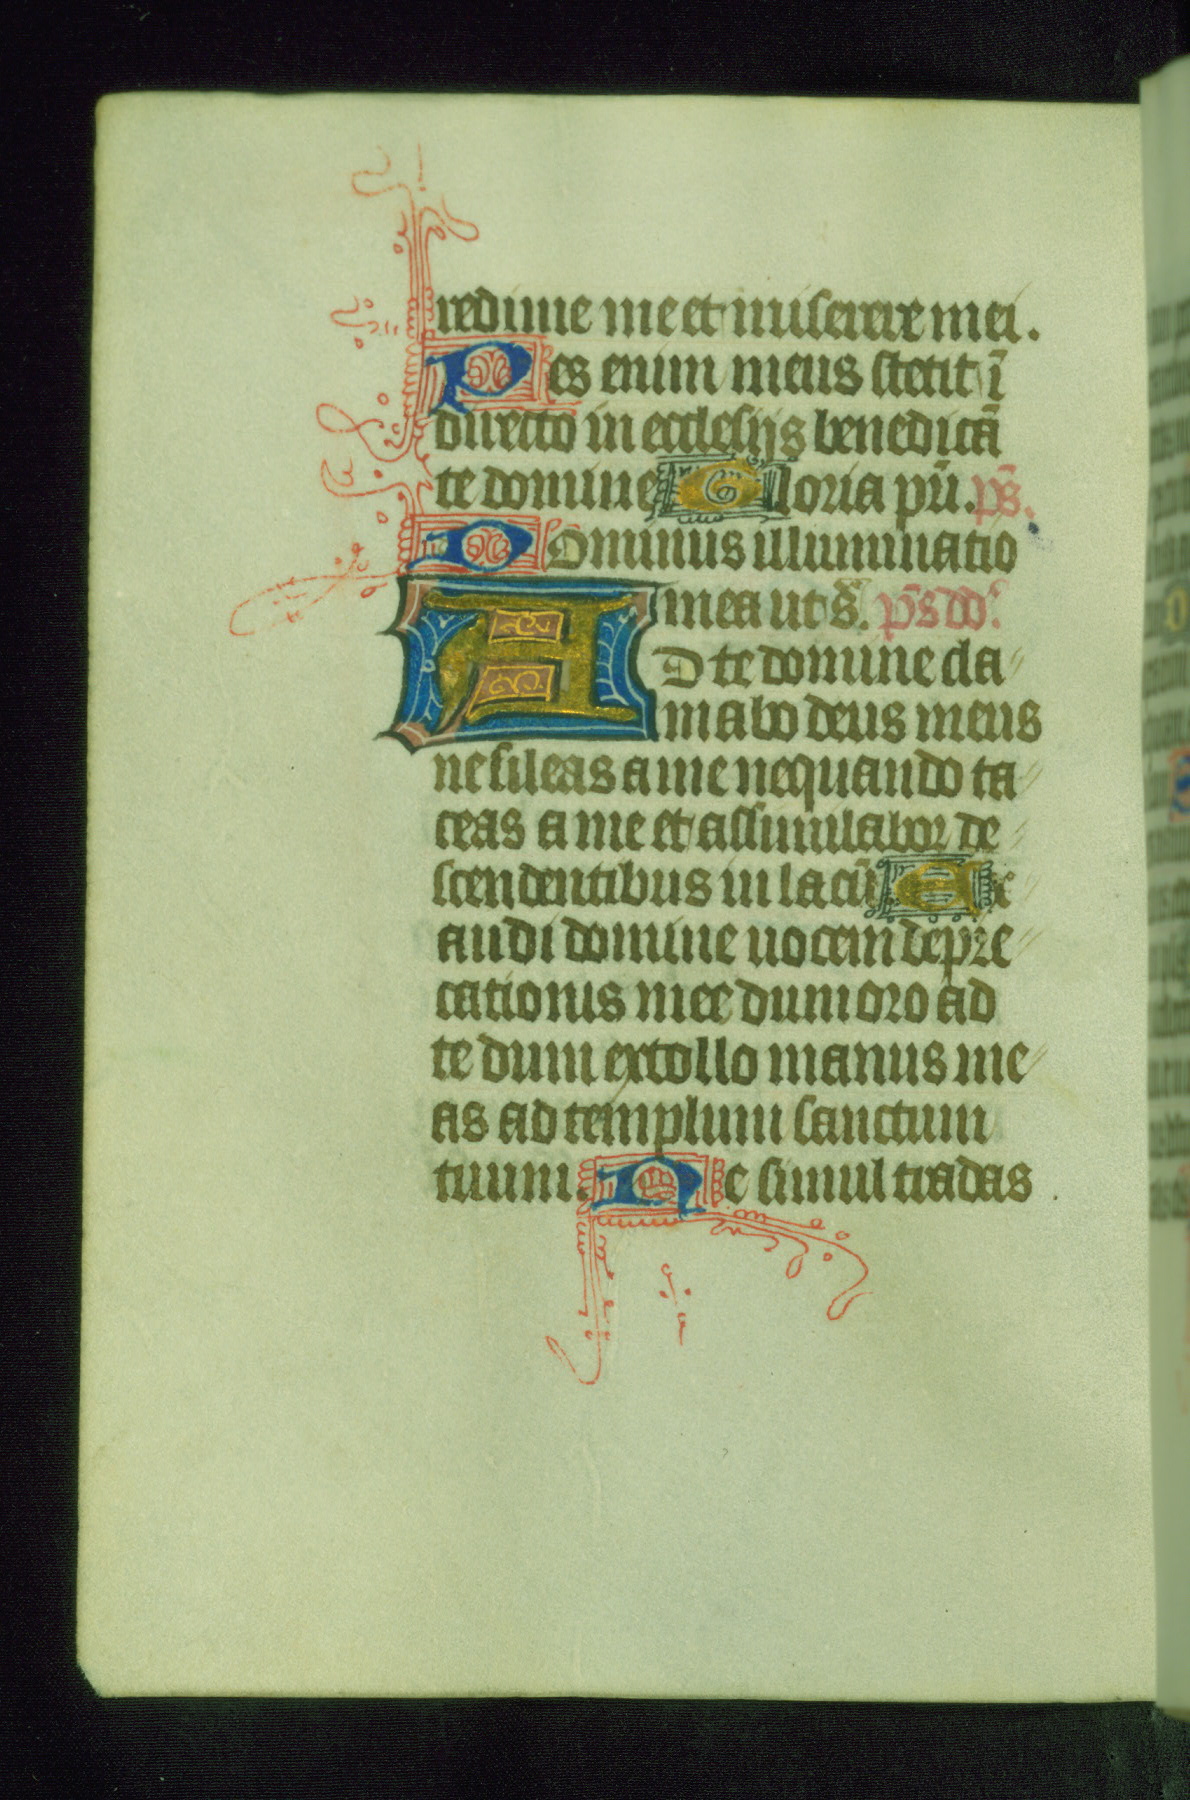 redime me et miserere mei.
Pes enim meus stetit ī
directo in ecclesijs benedicā
te domine Gloria pr̄i. p̄s.
Dominus illuminatio
mea ut s̄. p̄s dd.
AD te domine cla
mabo deus meus
ne sileas a me nequando ta
ceas a me et assimilabor de
scendentibus in lacū Ex
audi domine uocem depre
cationis mee dum oro ad
te dum extollo manus me
as ad templum sanctum
tuum. Ne simul tradas